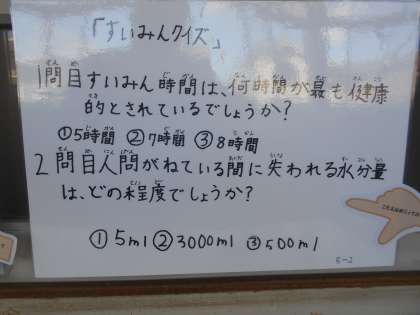 「すいみんクイズ」
1問目すいみん時間は、何時間が最も健康
的とされているでしょうか?
①5時間 ②7時間 ③8時間
2問目人間がねている間に失われる水分量
は、どの程度でしょうか?
①5ml ②3000ml ③500ml
5-2